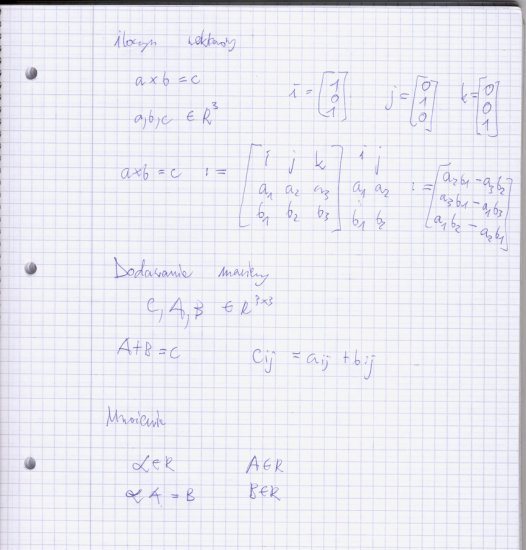 iloczyn wektorowy
a×b = c
a,b,c ∈ R³
i = [1 0 1] j = [0 1 0] k = [0 0 1]
a×b = c := [i j k; a₁ a₂ a₃; b₁ b₂ b₃] i j; a₁ a₂; b₁ b₂ := [a₂b₁ - a₃b₂; a₃b₁ - a₁b₃; a₁b₂ - a₂b₁]
Dodawanie macierzy
C, A, B ∈ R³ˣ³
A+B = C
Cij = aij + bij
Mnożenie
α∈R A∈R
αA = B B∈R